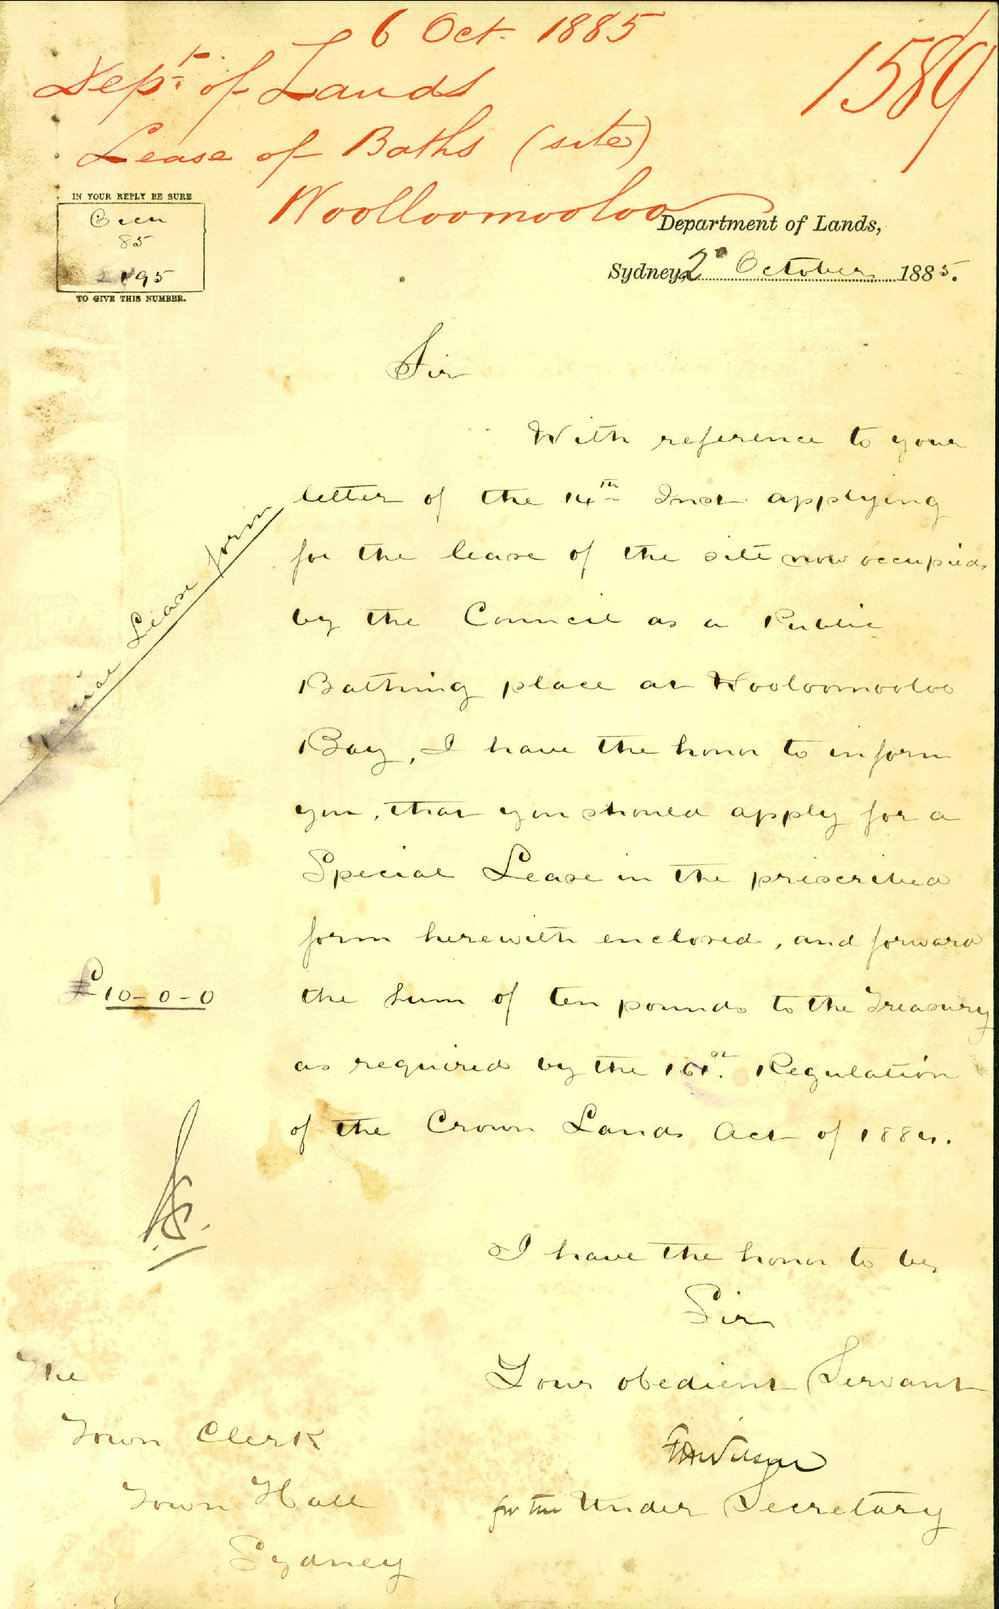 6 Oct. 1885
1589
Dept. of Lands
Lease of Baths (site)
Woolloomooloo
IN YOUR REPLY BE SURE
85
TO GIVE THIS NUMBER.
Department of Lands,
Sydney, 2° October 1885.
Sir
With reference to your
letter of the 14th Inst applying
for the lease of the site now occupied
by the Council as a Public
Bathing place at Wooloomooloo
Bay, I have the honor to inform
you, that you should apply for a
Special Lease in the prescribed
form herewith enclosed, and forward
the sum of ten pounds to the Treasury
as required by the 101st. Regulation
of the Crown Lands Act of 1884.
Special Lease form
£10-0-0
I have the honor to be,
Sir
Your obedient Servant
for the Under Secretary
The
Town Clerk
Town Hall
Sydney